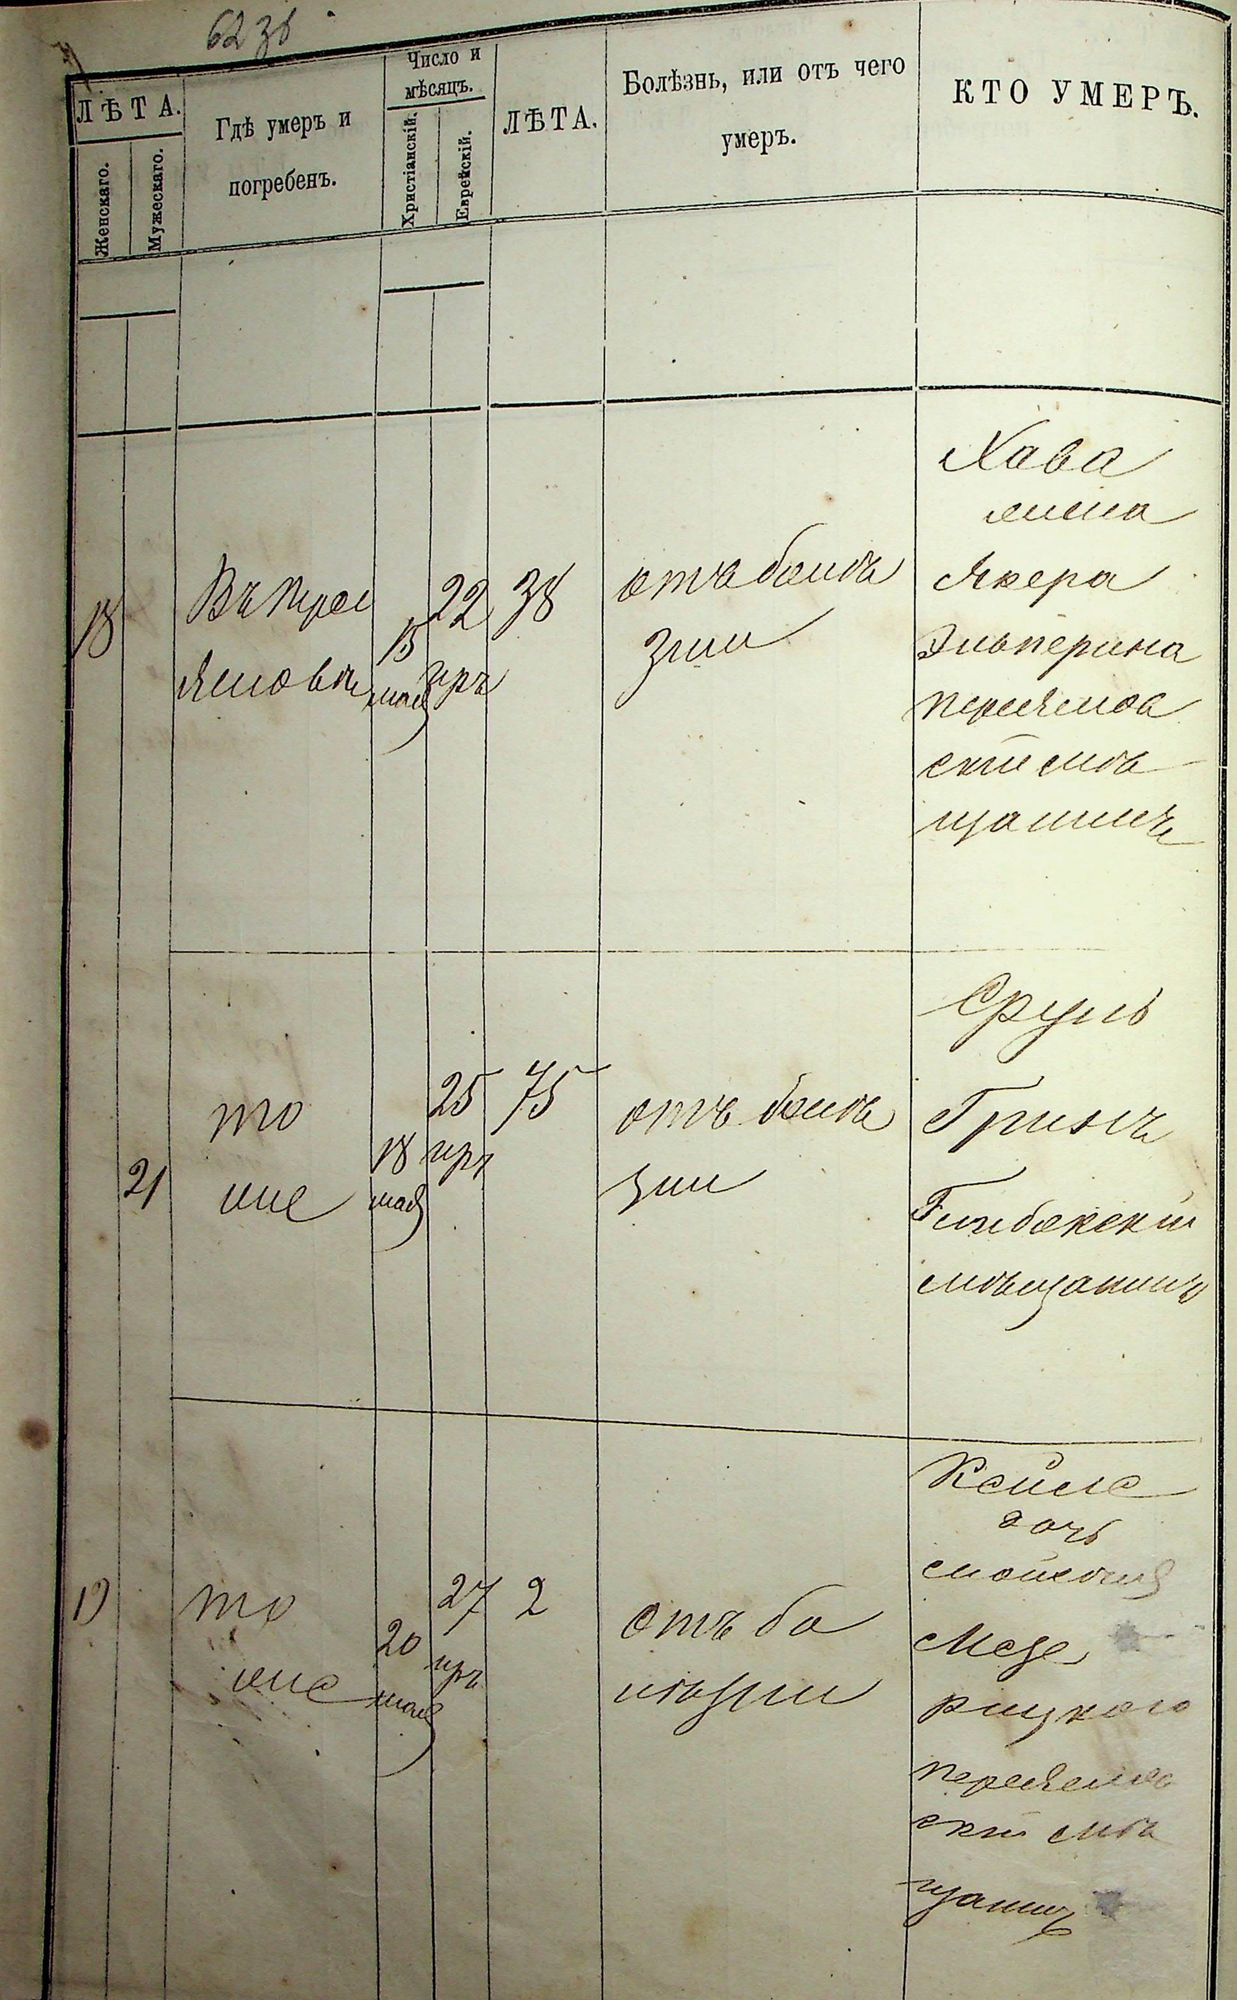 62 зв
ЛѢТА.
Женскаго.
Мужескаго.
Гдѣ умеръ и
погребенъ.
Число и
мѣсяцъ.
Христіанскій.
Еврейскій.
ЛѢТА.
Болѣзнь, или отъ чего
умеръ.
КТО УМЕРЪ.
18
Въ Пере
яслове
15
мая
22
ира
38
отъ болѣ
зни
Хава
жена
Якера
Эльперина
переясла
скій мѣ
щанинъ
21
то
же
18
мая
25
ира
75
отъ болѣ
зни
Сруль
Гринъ
мѣщанинъ
19
то
же
20
мая
27
ира
2
отъ бо
лѣзни
Кейле
дочь
Мезе
рицкого
переясла
скій мѣ
щанинъ